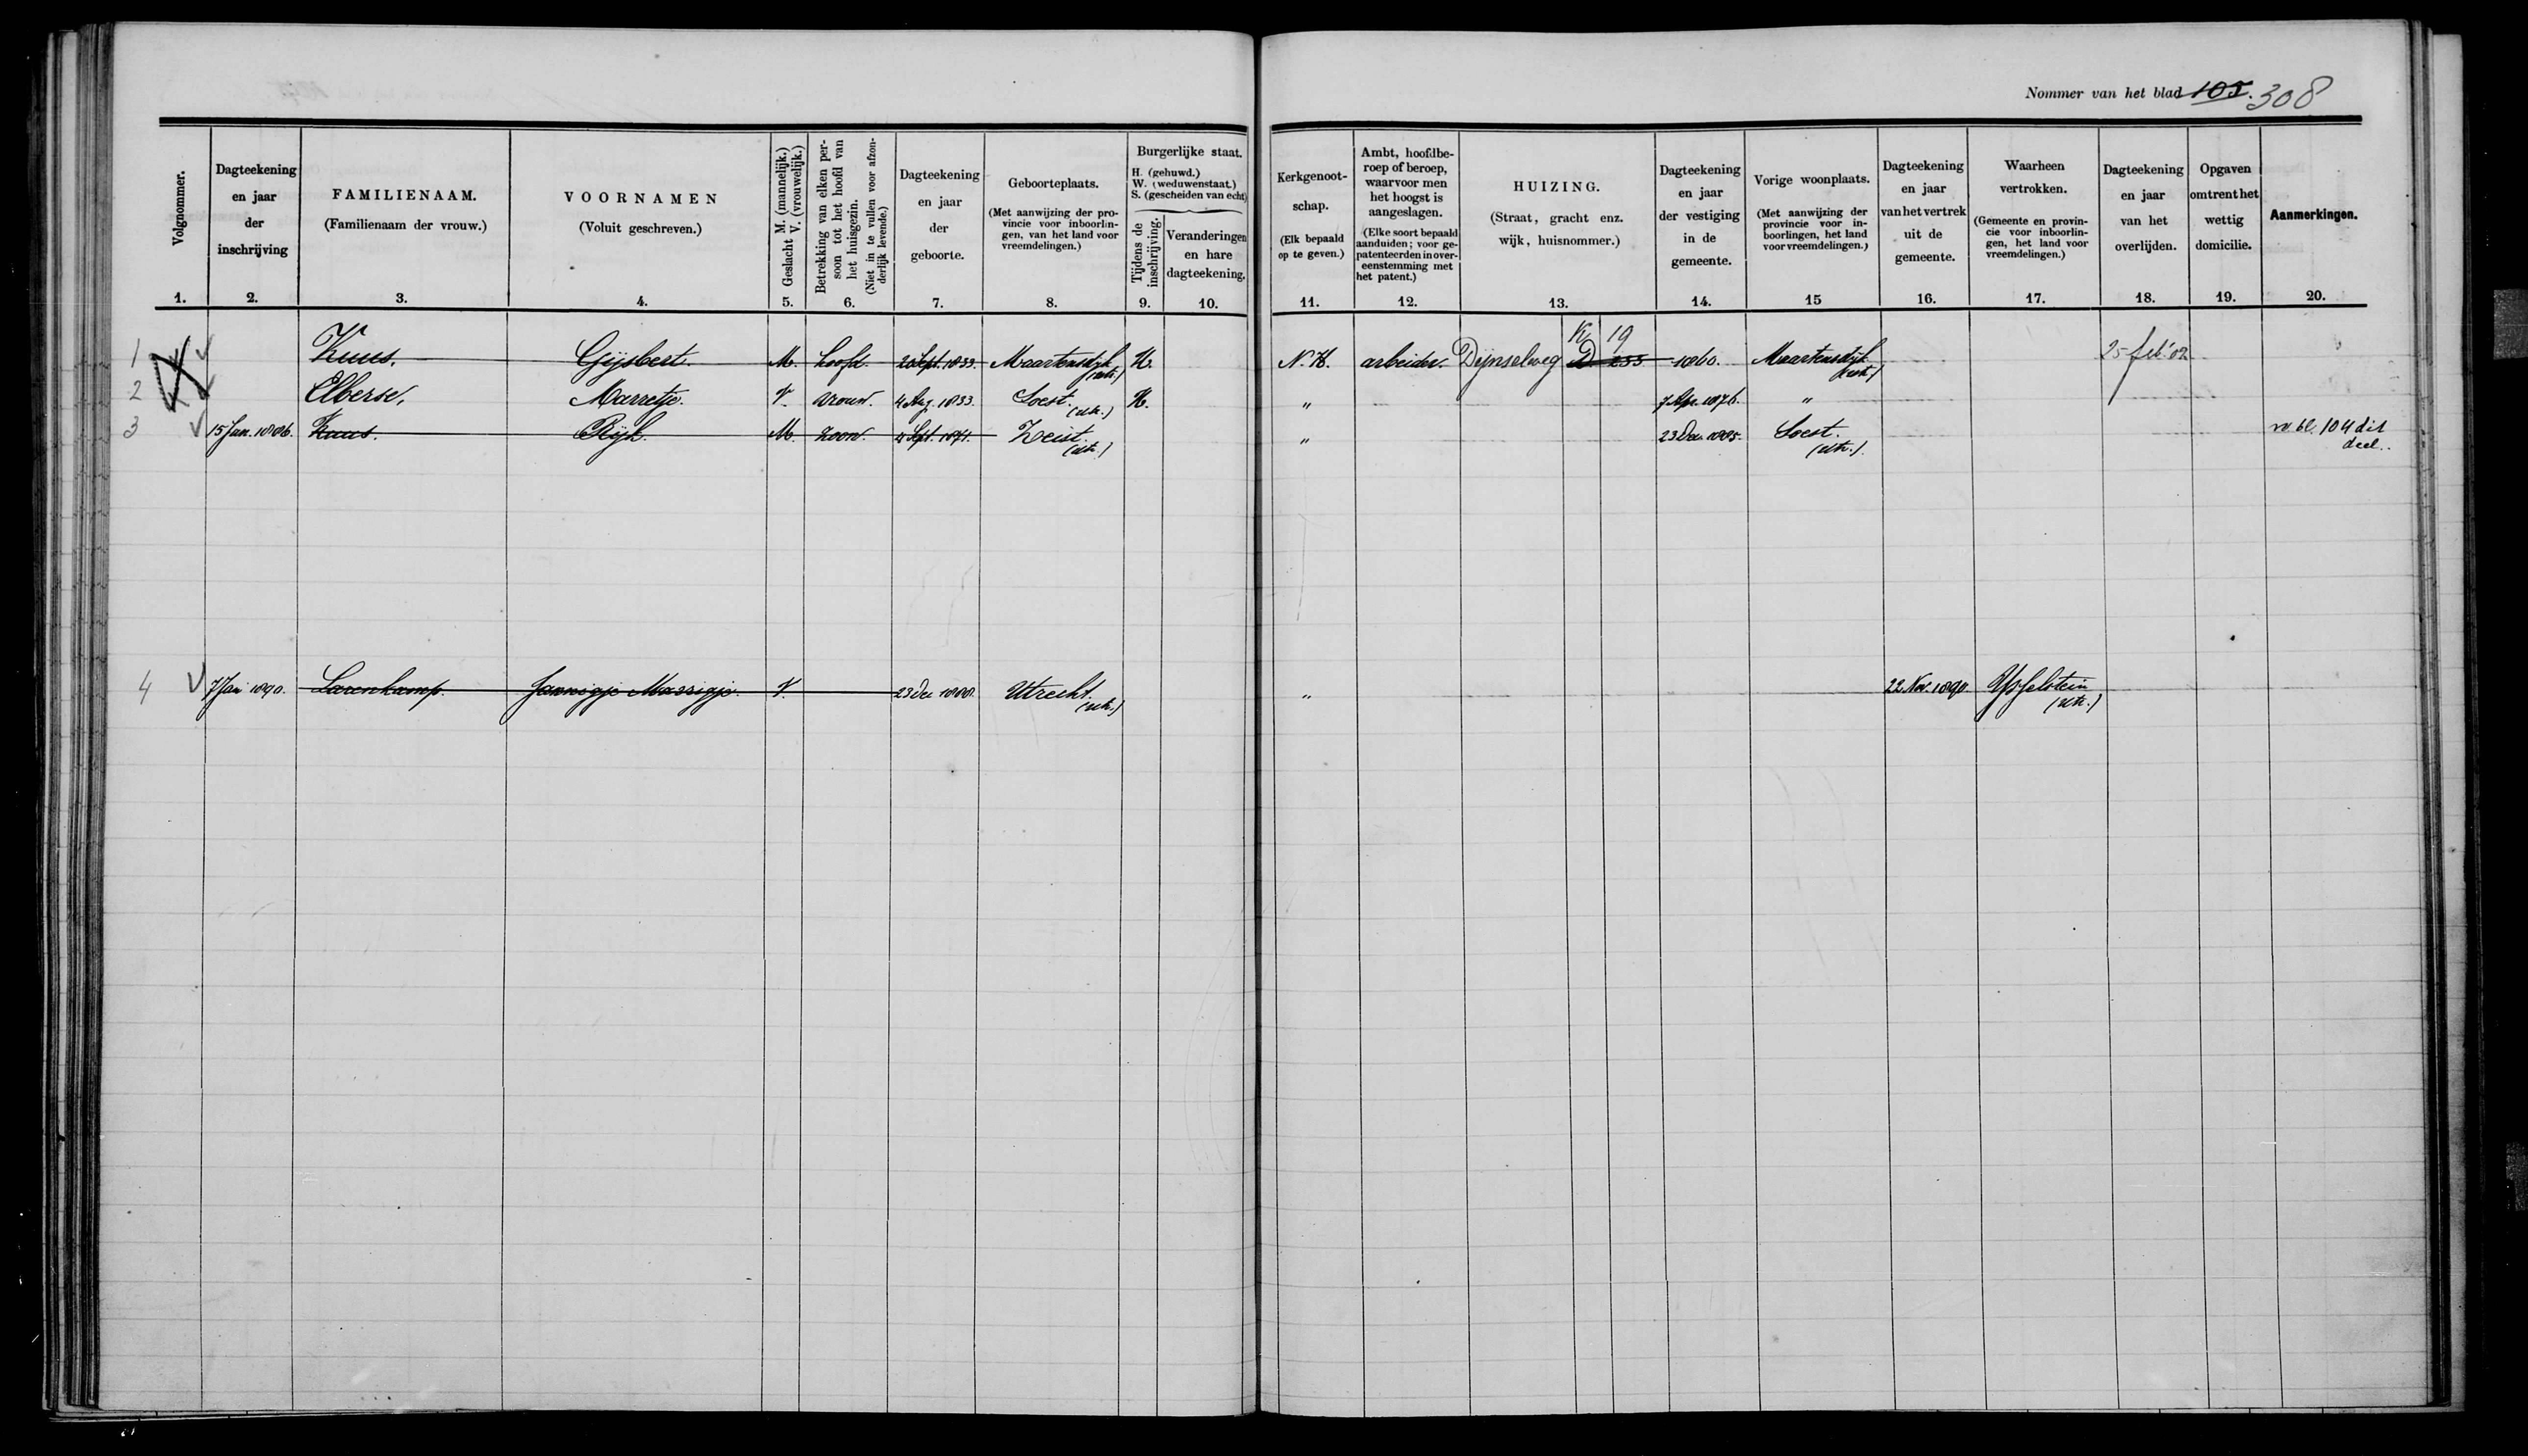 Nommer van het blad 105. 308
Volgnommer.
1.
Dagteekening
en jaar
der
inschrijving
2.
FAMILIENAAM.
(Familienaam der vrouw.)
3.
VOORNAMEN
(Voluit geschreven.)
4.
Geslacht M. (mannelijk.)
V. (vrouwelijk.)
5.
Betrekking van elken per-
soon tot het hoofd van
het huisgezin.
(Niet in te vullen voor afzon-
derlijk levende.)
6.
Dagteekening
en jaar
der
geboorte.
7.
Geboorteplaats.
(Met aanwijzing der pro-
vincie voor inboorlin-
gen, van het land voor
vreemdelingen.)
8.
Burgerlijke staat.
H. (gehuwd.)
W. (weduwenstaat.)
S. (gescheiden van echt)
Tijdens de
inschrijving.
9.
Veranderingen
en hare
dagteekening.
10.
Kerkgenoot-
schap.
(Elk bepaald
op te geven.)
11.
Ambt, hoofdbe-
roep of beroep,
waarvoor men
het hoogst is
aangeslagen.
(Elke soort bepaald
aanduiden; voor ge-
patenteerden in over-
eenstemming met
het patent.)
12.
HUIZING.
(Straat, gracht enz.
wijk, huisnommer.)
13.
Dagteekening
en jaar
der vestiging
in de
gemeente.
14.
Vorige woonplaats.
(Met aanwijzing der
provincie voor in-
boorlingen, het land
voor vreemdelingen.)
15
Dagteekening
en jaar
van het vertrek
uit de
gemeente.
16.
Waarheen
vertrokken.
(Gemeente en provin-
cie voor inboorlin-
gen, het land voor
vreemdelingen.)
17.
Dagteekening
en jaar
van het
overlijden.
18.
Opgaven
omtrent het
wettig
domicilie.
19.
Aanmerkingen.
20.
K 19
1 Kuus, Gijsbert. M. hoofd. 2 Sept. 1833. Maartensdijk (utr.) H. N.H. arbeider. Dijnselweg D 255 1860. Maartensdijk (utr.) 25 feb. '02
2 Elberse, Marretje. V. vrouw. 4 Aug. 1833. Soest. (utr.) H. " 7 Apr. 1876. "
3 15 Jan. 1886. Kuus. Rijk. M. zoon. 4 Sept. 1871. Zeist. (utr.) " 23 Dec. 1885. Soest. (utr.) bl. 104 dit
deel.
4 7 Jan 1890. Larenkamp. Jannigje Massigje. V. 23 Dec 1888. Utrecht. (utr.) " 22 Nov. 1890. IJsselstein (utr.)